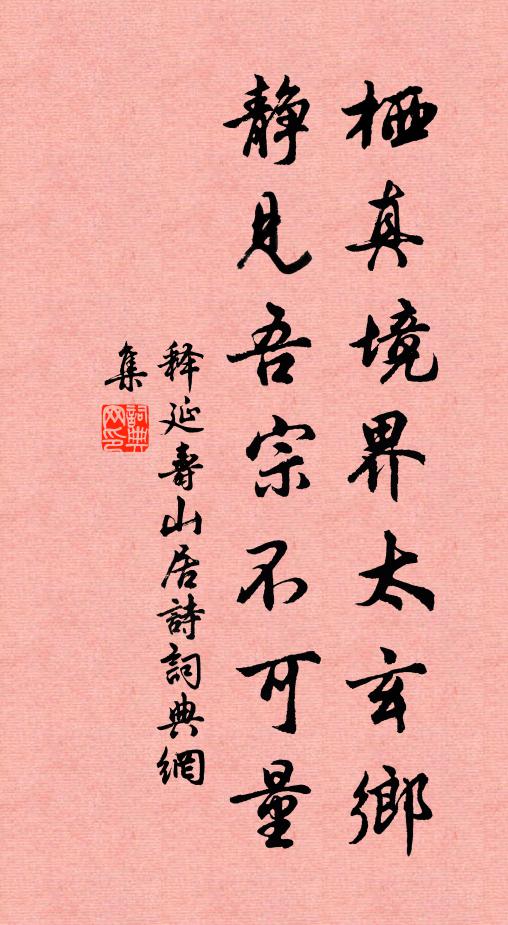 栖真境界太玄鄉
静見吾宗不可量
释延壽山居詩詞典網
集
詞典網印